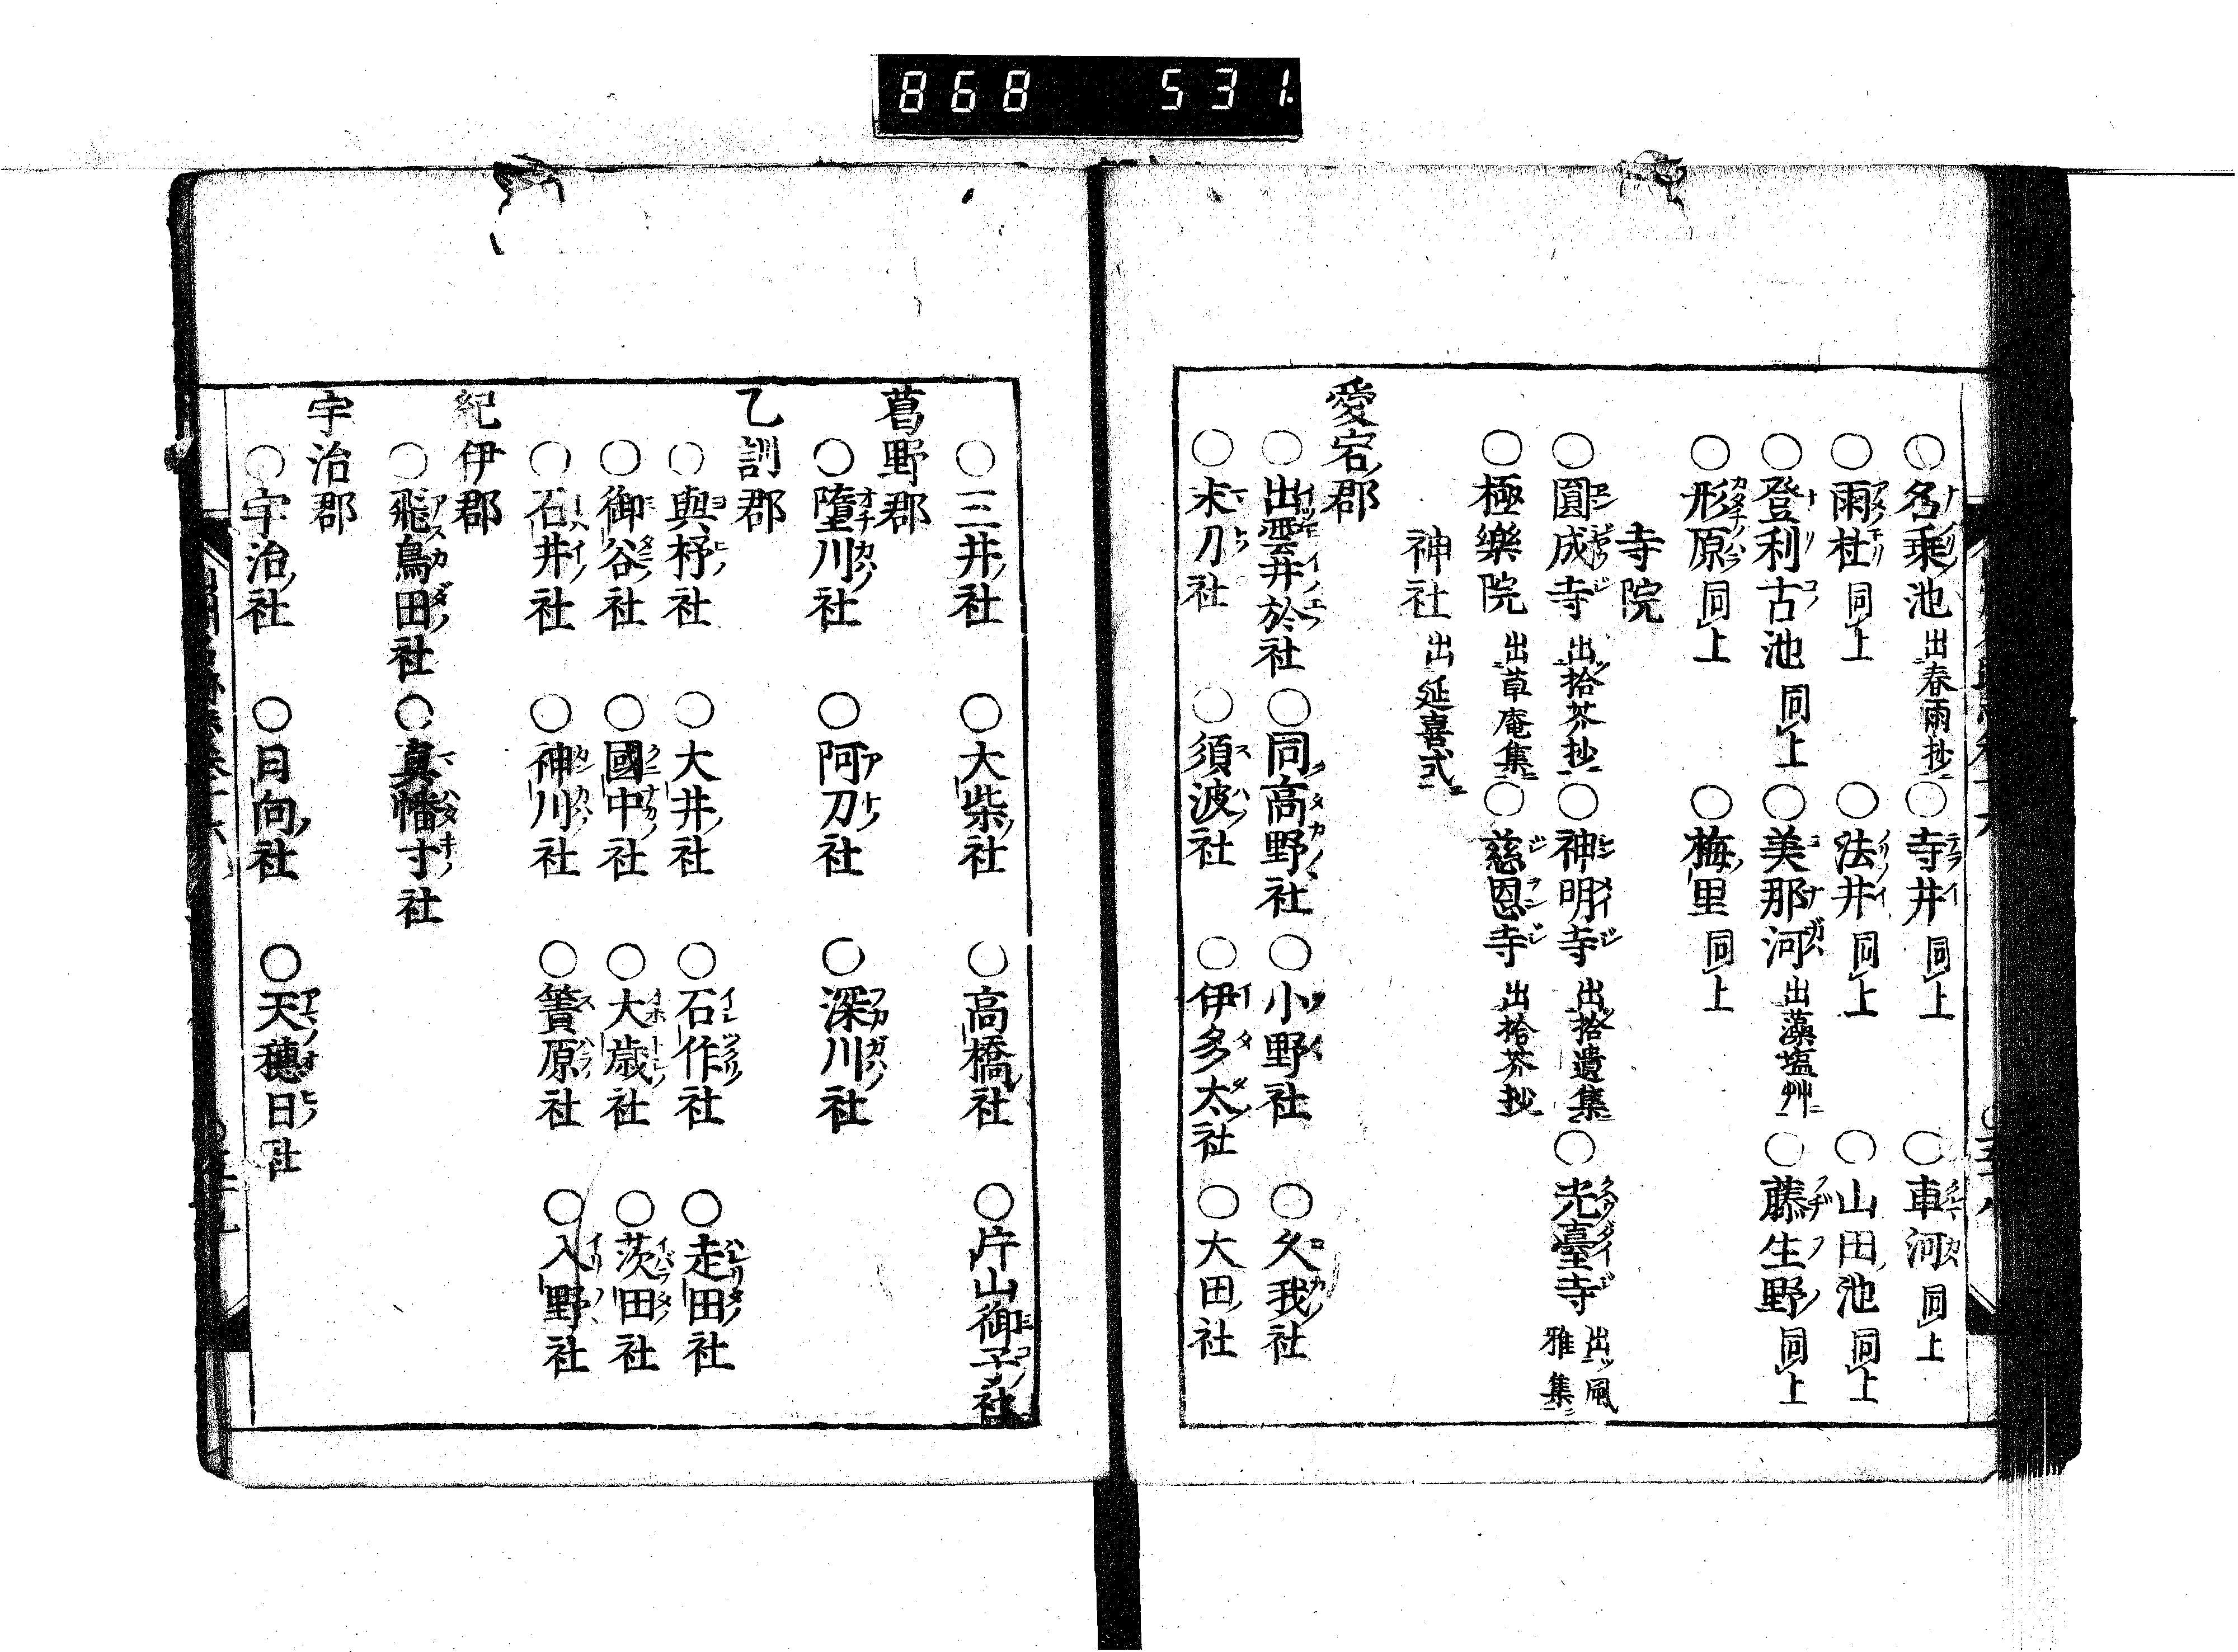 868 531.
○名乗池出春雨抄○寺井同上○車河同上
○雨杜同上○法井同上○山田池同上
○登利古池同上○美那河出藻塩艸○藤生野同上
○形原同上○梅里同上
寺院
○圓成寺出拾芥抄○神明寺出拾遺集○光臺寺出風雅集
○極樂院出草庵集○慈恩寺出拾芥抄
神社出延喜式
愛宕郡
○出雲井於社○同高野社○小野社○久我社
○末刀社○須波社○伊多太社○大田社
○三井社○大柴社○高橋社○片山御子社
葛野郡
○墮川社○阿刀社○深川社
乙訓郡
○與杼社○大井社○石作社○走田社
○御谷社○國中社○大歳社○茨田社
○石井社○神川社○簀原社○入野社
紀伊郡
○飛鳥田社○真幡寸社
宇治郡
○宇治社○日向社○天穗日社